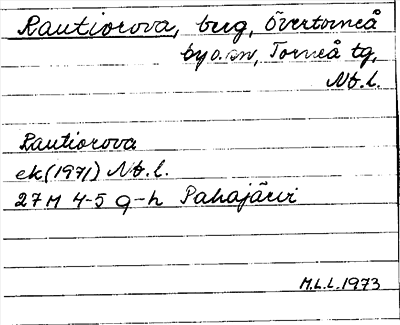 Rautiorova, berg, Övertorneå
by o. sn, Torneå tg,
Nb.l.
Rautiorova
ek(1971) Nb.l.
27M 4-5 g-h Pahajärvi
M.L.L.1973